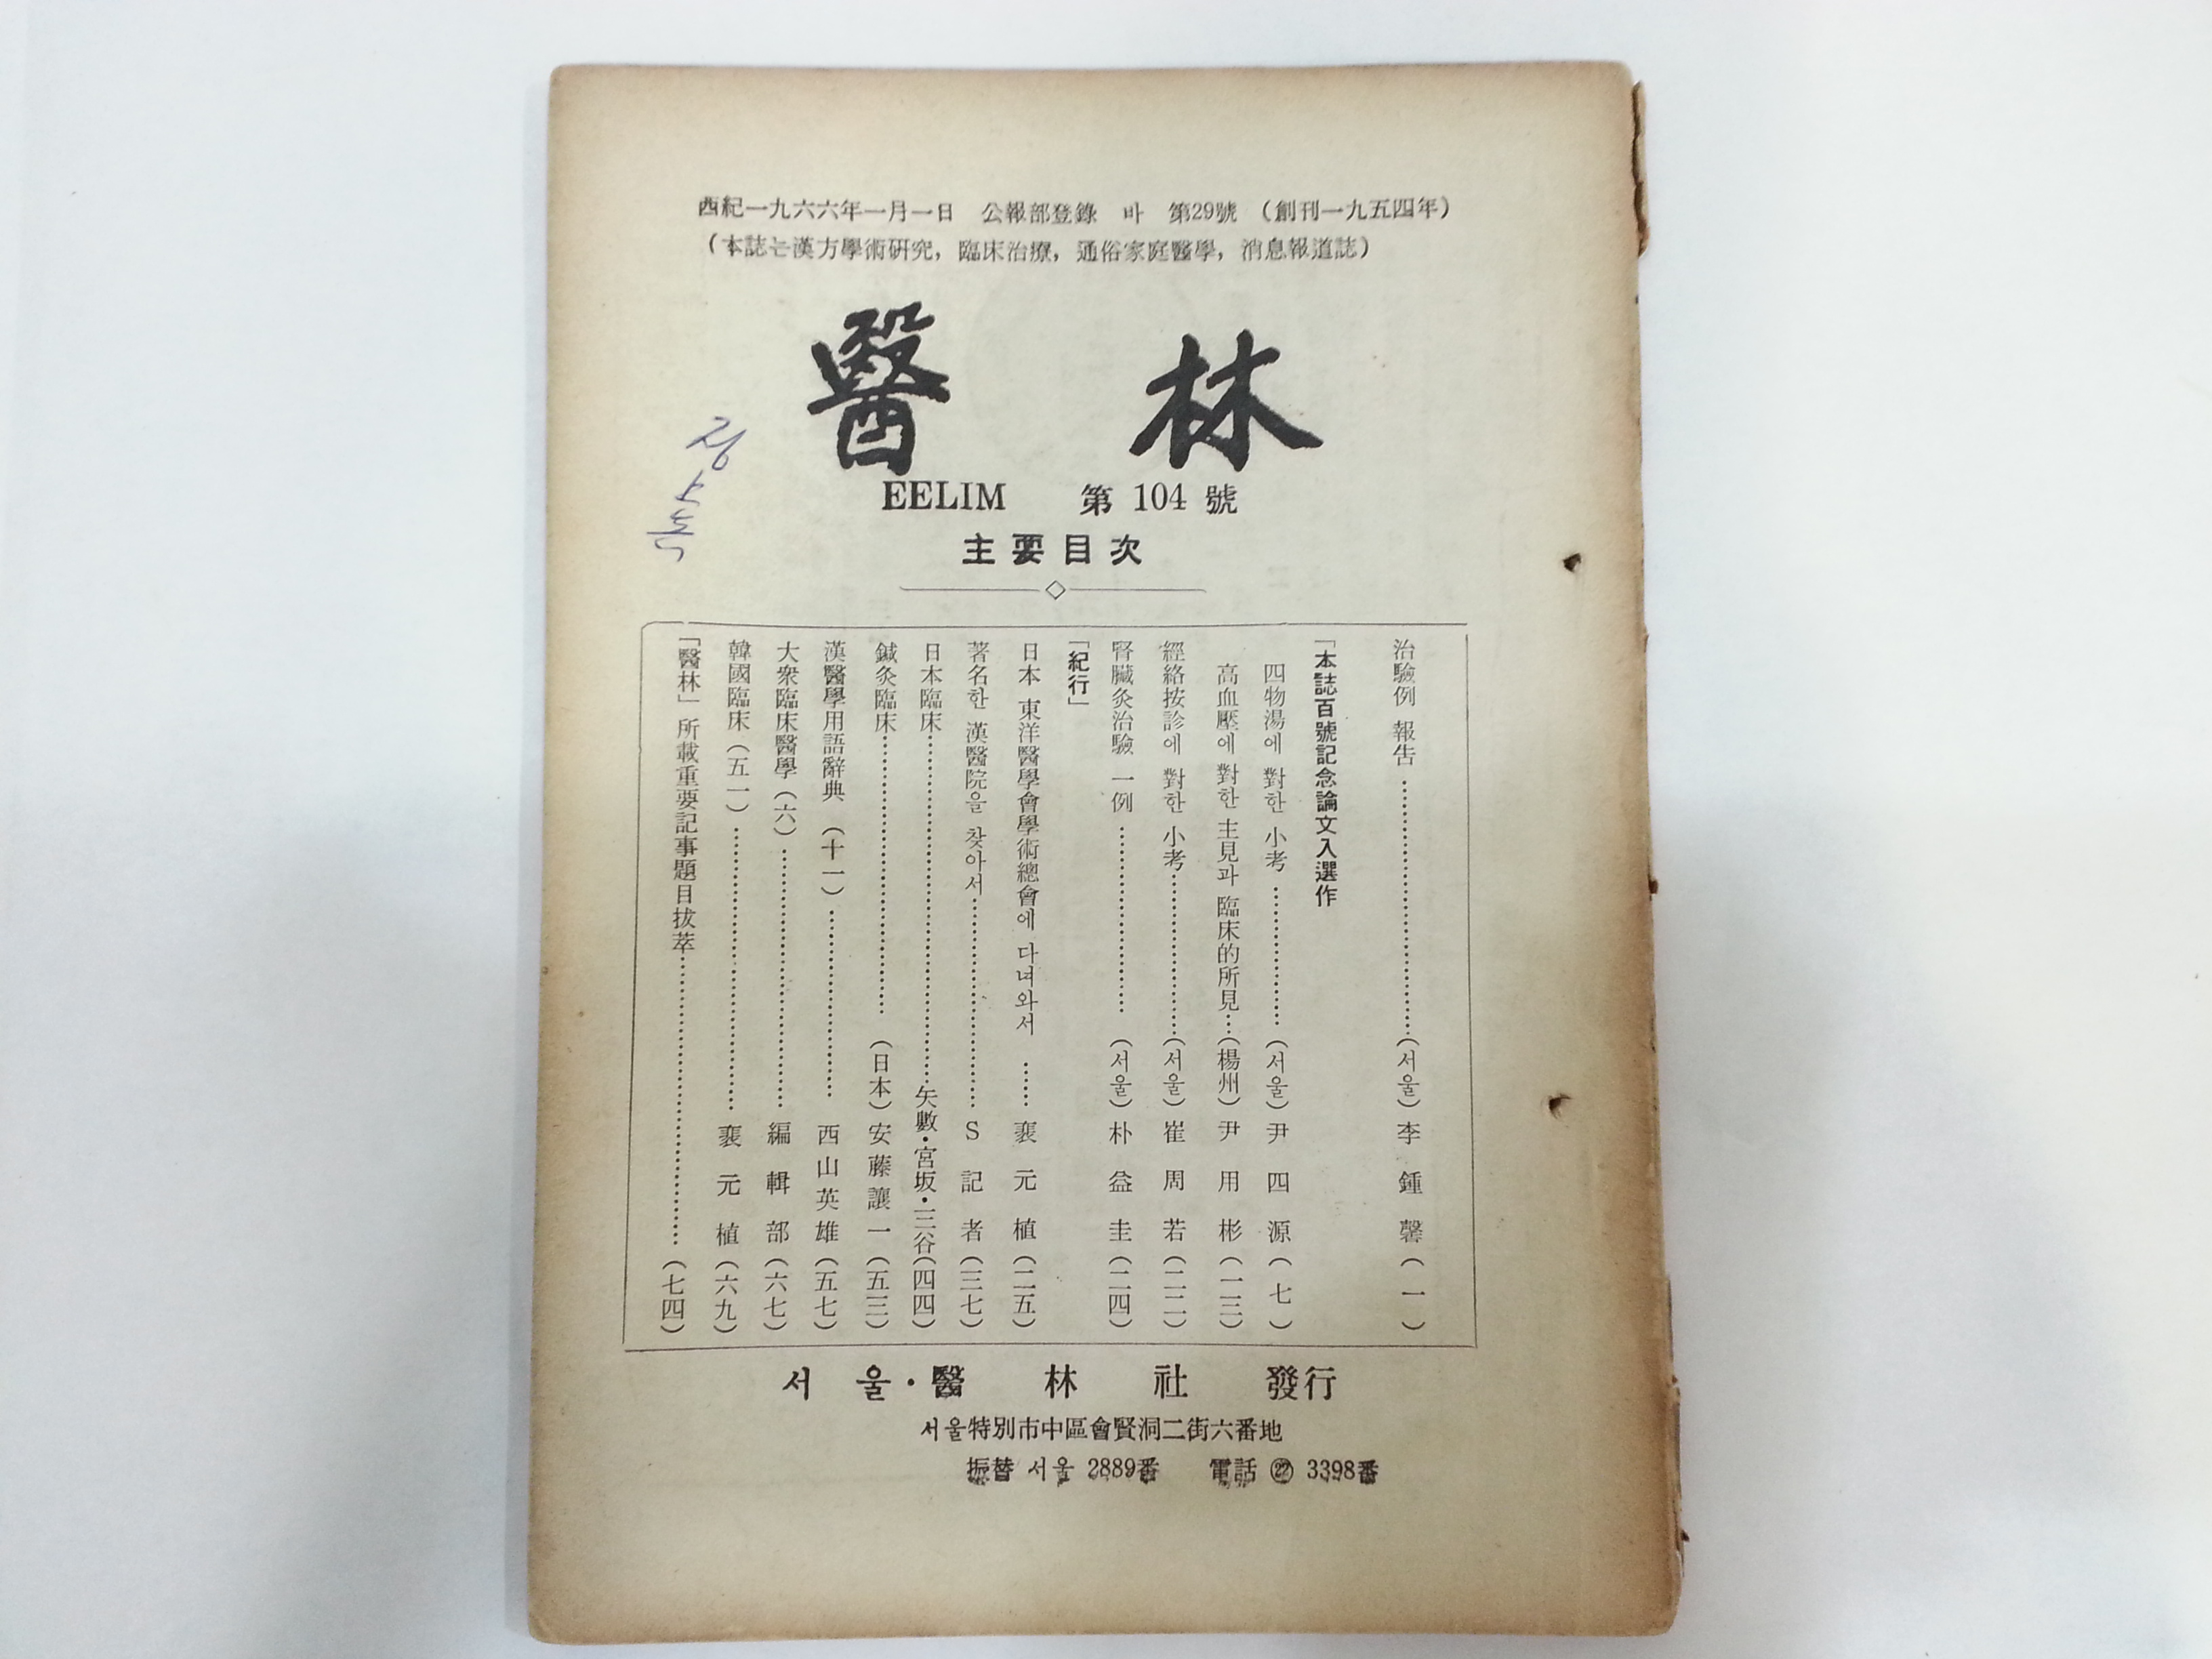 西紀一九六六年一月一日 公報部登錄 바 第29號 (創刊一九五四年)
(本誌는漢方學術硏究, 臨床治療, 通俗家庭醫學, 消息報道誌)
醫林
EELIM 第 104 號
主要目次
治驗例 報告……………………(서울) 李鍾馨 (一)
「本誌百號記念論文入選作
四物湯에 對한 小考……………(서울) 尹四源 (七)
高血壓에 對한 主見과 臨床的所見…(楊州) 尹用彬 (一三)
經絡按診에 對한 小考……………(서울) 崔周若 (二二)
腎臟灸治驗 一例………………(서울) 朴益圭 (二四)
「紀行」
日本 東洋醫學會學術總會에 다녀와서……裵元植 (二五)
著名한 漢醫院을 찾아서………………S記者 (三七)
日本臨床………………………矢數・宮坂・三谷 (四四)
鍼灸臨床………………………(日本) 安藤讓一 (五三)
漢醫學用語辭典 (十一)………………西山英雄 (五七)
大衆臨床醫學 (六)…………………編輯部 (六七)
韓國臨床 (五一)…………………裵元植 (六九)
「醫林」所載重要記事題目拔萃………………(七四)
서울・醫林社 發行
서울特別市中區會賢洞二街六番地
振替 서울 2889番 電話 ㉒ 3398番